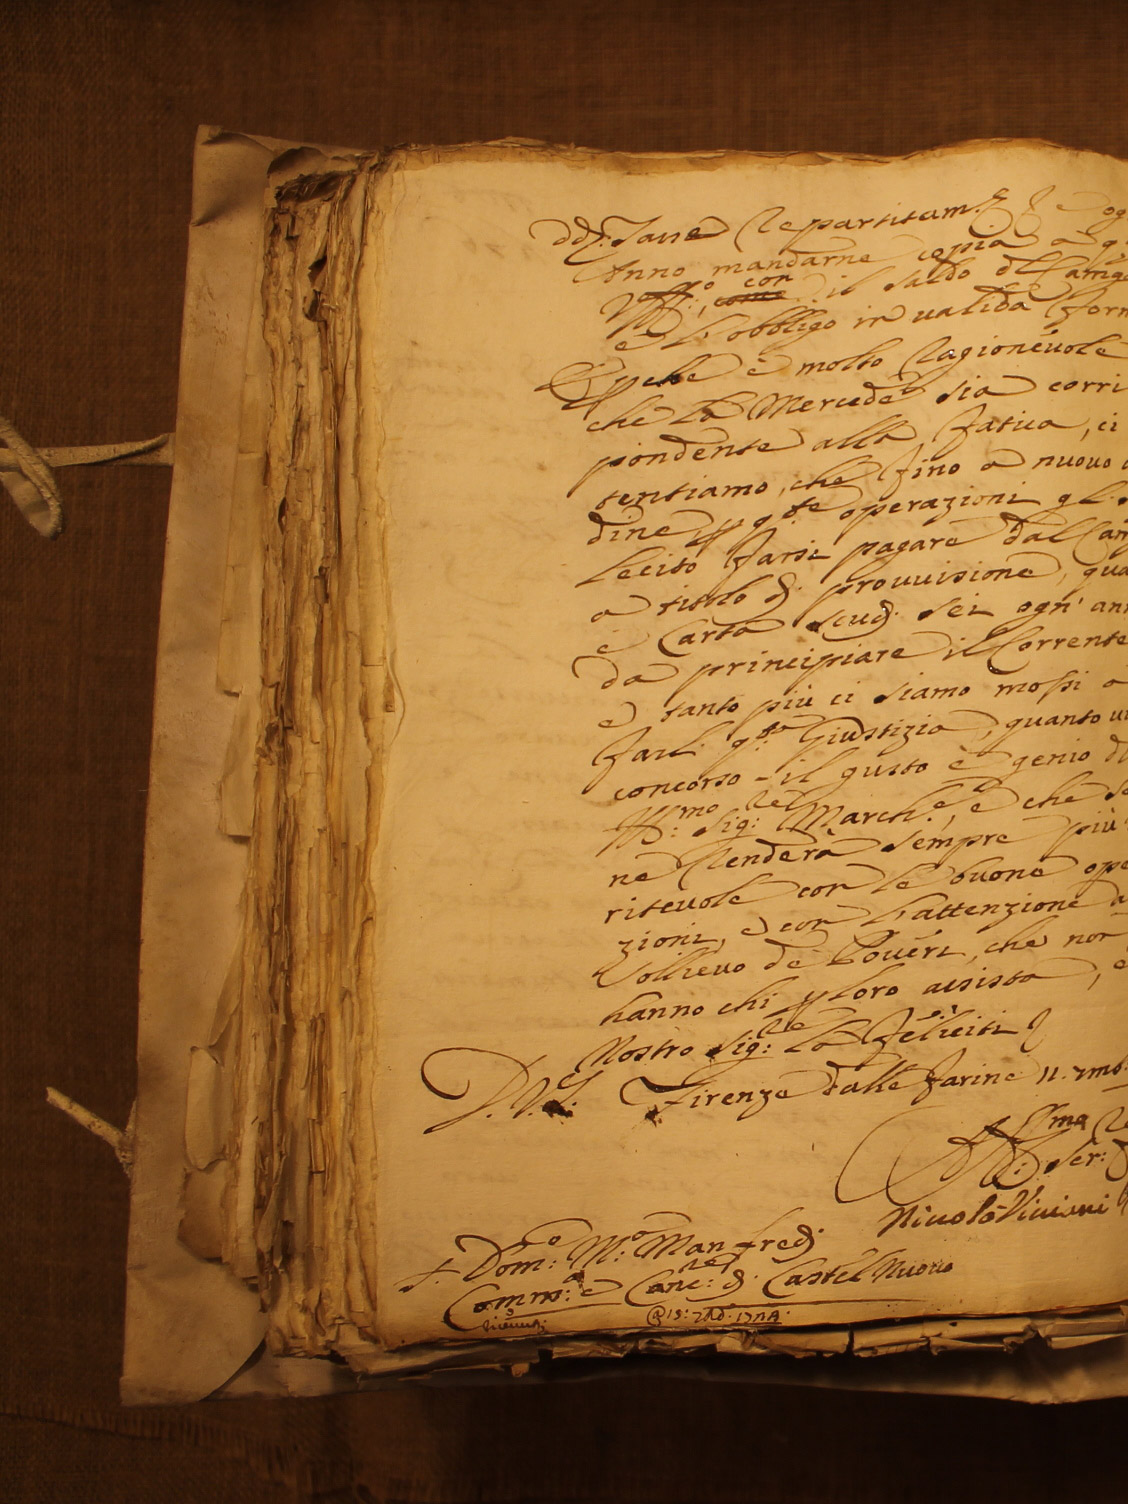 Anno mandarne copia a
con il saldo del
e l'obbligo in valida form
E perche è molto ragionevole
che la Mercede sia corri
pondente alla fatica, ci
tentiamo, che fino a nuovo
dine p q.te operazioni gl.
lecito farsi pagare dal
a titolo d. provvisione, qua
e Carta scudi sei ogn' an
da principiare il Corrente
e tanto più ci siamo mossi a
farl. q.ta Giustizia, quanto vi
concorso il gusto e genio d
Ill:mo Sig:re March:e, e che
ne renderà sempre più
ritevole con le buone ope
zioni, e con l'attenzione a
sollievo de Poveri, che non
hanno chi p loro assista, e
Nostro Sig:re la feliciti
Firenze dalle farine 11. 7mb.
Ser:
Nicolò Viviani
S. Dom:o M:o Manfredi
Comm:a e Canc:re d. Castel Nuovo